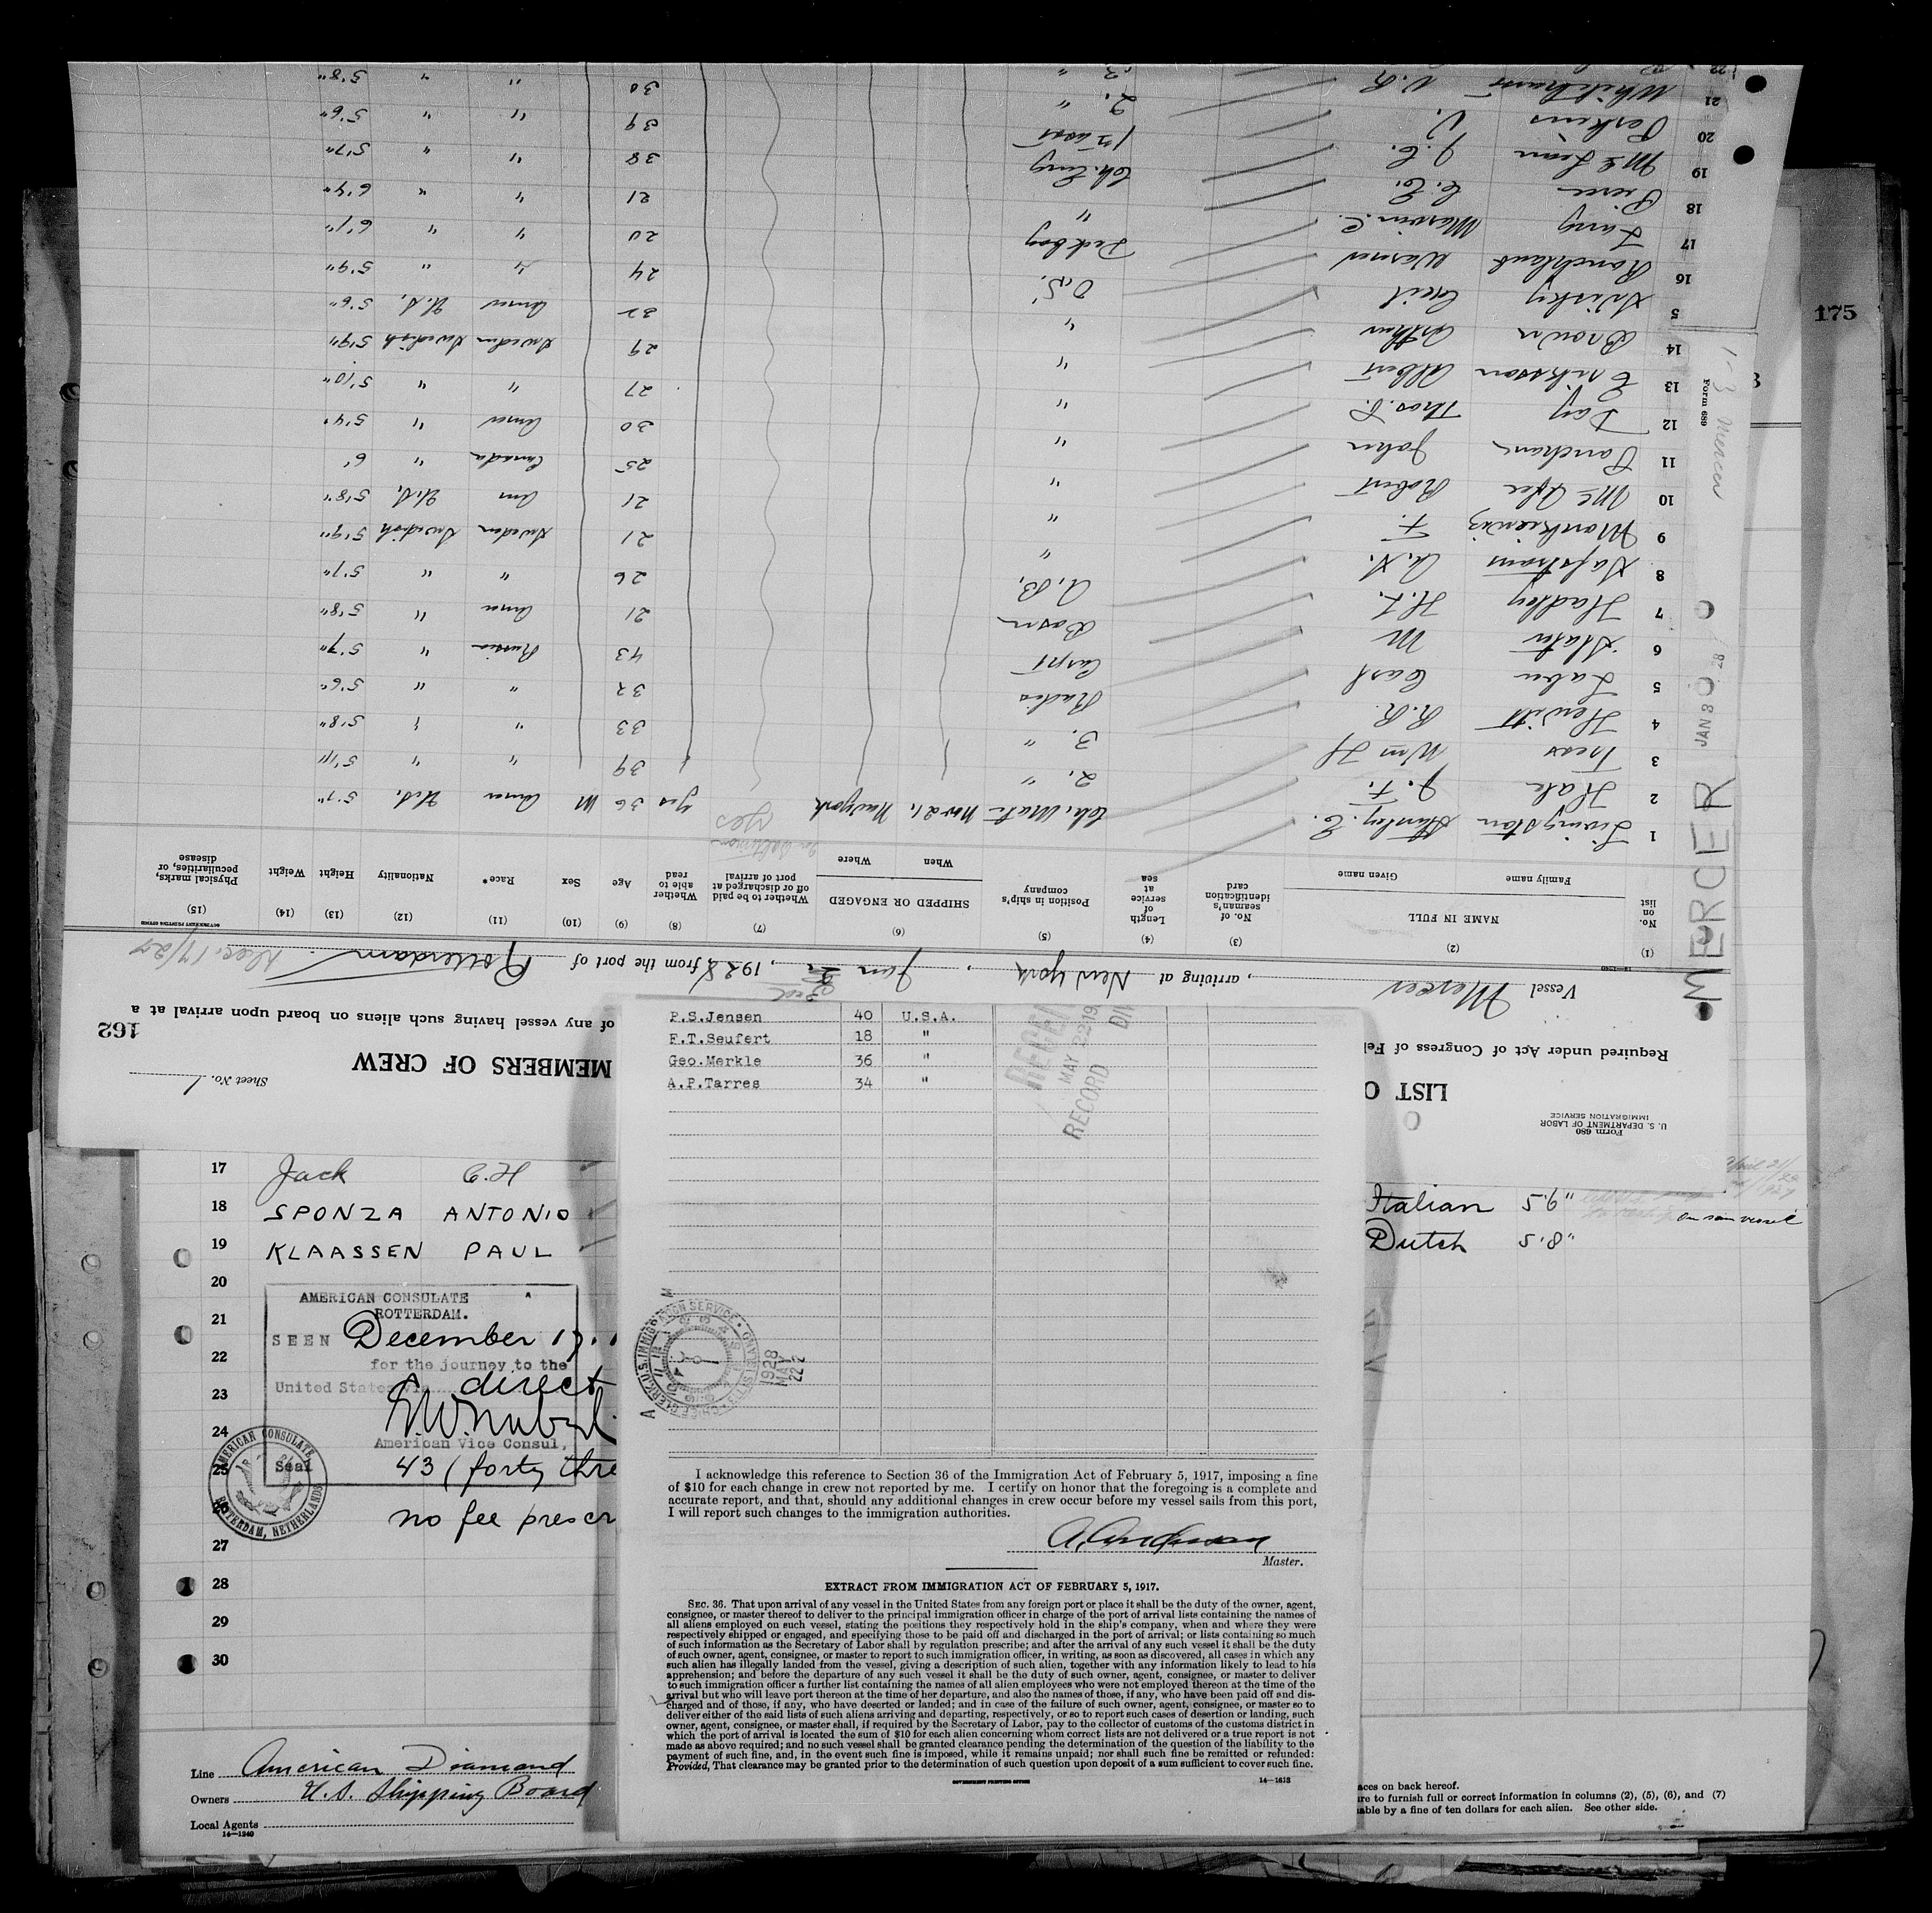 Form 680
U. S. DEPARTMENT OF LABOR
IMMIGRATION SERVICE
LIST O
MEMBERS OF CREW
Sheet No. 1
162
Required under Act of Congress of Fe
of any vessel having such aliens on board upon arrival at a
Vessel Mercer, arriving at New York, Jan 2, 1928, from the port of Rotterdam Dec. 17/27
(1) (2) (3) (4) (5) (6) (7) (8) (9) (10) (11) (12) (13) (14) (15)
No. on list
NAME IN FULL
Family name Given name
No. of seaman's identification card
Length of service at sea
Position in ship's company
SHIPPED OR ENGAGED
When Where
Whether to be paid off or discharged at port of arrival
Whether able to read
Age
Sex
Race*
Nationality
Height
Weight
Physical marks, peculiarities, or disease
1 Livingston Stanley. C. Ch. Mate Nov 21, New York Yes Yes 36 M Amer U.S. 5'7"
2 Hale J. F. 2. " 39 " " 5'11"
3 Treas Wm H 3. " 33 " 5'8"
4 Hewitt R.R. Radio 32 " " 5'6"
5 Laben Carl Carpt 43 Russia " 5'7"
6 Slater M Bosn 21 Amer " 5'8"
7 Hadley H.L. A.B. 26 " " 5'7"
8 Safstrom A.V. " 21 Sweden Swedish 5'9"
9 Mankiewiz F. " 21 Am U.S. 5'8"
10 McAfee Robert " 25 Canada " 6'
11 Panchan John " 30 Amer " 5'4"
12 Day Thos. L. " 27 " " 5'10"
13 Eriksson Albert " 29 Sweden Swedish 5'9"
14 Brown Arthur " 32 Amer U.S. 5'6"
5 Cecil O.S. 24 " " 5'9"
16 Warner Deck boy 20 " " 6'1"
17 Lang Marvin. C. " 21 " " 6'4"
18 Pierce C. C. Ch. Eng 38 " " 5'7"
19 McLean J. C. 1st asst 39 " " 5'6"
20 Perkins V. 2. " 30 " " 5'8"
21 Whitehurst V. R 3. "
22
MERCER
JAN 3 28
1-3 Mercer
Form 689
175
P.S.Jensen 40 U.S.A.
F.T.Seufert 18 "
Geo.Merkle 36 "
A.P.Tarres 34 "
RECEI
MAY 22 19
RECORD DIV
1928
MAY
22
I acknowledge this reference to Section 36 of the Immigration Act of February 5, 1917, imposing a fine
of $10 for each change in crew not reported by me. I certify on honor that the foregoing is a complete and
accurate report, and that, should any additional changes in crew occur before my vessel sails from this port,
I will report such changes to the immigration authorities.
Master.
EXTRACT FROM IMMIGRATION ACT OF FEBRUARY 5, 1917.
SEC. 36. That upon arrival of any vessel in the United States from any foreign port or place it shall be the duty of the owner, agent,
consignee, or master thereof to deliver to the principal immigration officer in charge of the port of arrival lists containing the names of
all aliens employed on such vessel, stating the positions they respectively hold in the ship's company, when and where they were
respectively shipped or engaged, and specifying those to be paid off and discharged in the port of arrival; or lists containing so much
of such information as the Secretary of Labor shall by regulation prescribe; and after the arrival of any such vessel it shall be the duty
of such owner, agent, consignee, or master to report to such immigration officer, in writing, as soon as discovered, all cases in which any
such alien has illegally landed from the vessel, giving a description of such alien, together with any information likely to lead to his
apprehension; and before the departure of any such vessel it shall be the duty of such owner, agent, consignee, or master to deliver
to such immigration officer a further list containing the names of all alien employees who were not employed thereon at the time of the
arrival but who will leave port thereon at the time of her departure, and also the names of those, if any, who have been paid off and dis-
charged and of those, if any, who have deserted or landed; and in case of the failure of such owner, agent, consignee, or master so to
deliver either of the said lists of such aliens arriving and departing, respectively, or so to report such cases of desertion or landing, such
owner, agent, consignee, or master shall, if required by the Secretary of Labor, pay to the collector of customs of the customs district in
which the port of arrival is located the sum of $10 for each alien concerning whom correct lists are not delivered or a true report is not
made as above required; and no such vessel shall be granted clearance pending the determination of the question of the liability to the
payment of such fine, and, in the event such fine is imposed, while it remains unpaid; nor shall such fine be remitted or refunded:
Provided, That clearance may be granted prior to the determination of such question upon deposit of a sum sufficient to cover such fine.
GOVERNMENT PRINTING OFFICE
14—1613
17 Jack C.H
18 SPONZA ANTONIO Italian 5'6"
19 KLAASSEN PAUL Dutch 5'8"
20
21
22
23
24
25
26
27
28
29
30
AMERICAN CONSULATE
ROTTERDAM.
SEEN December 17.
for the journey to the
United States via direct
American Vice Consul,
Seal 43 (forty thre
no fee prescr
AMERICAN CONSULATE
ROTTERDAM, NETHERLANDS
Line American Diamond
Owners U.S. Shipping Board
Local Agents
14—1240
aces on back hereof.
re to furnish full or correct information in columns (2), (5), (6), and (7)
able by a fine of ten dollars for each alien. See other side.